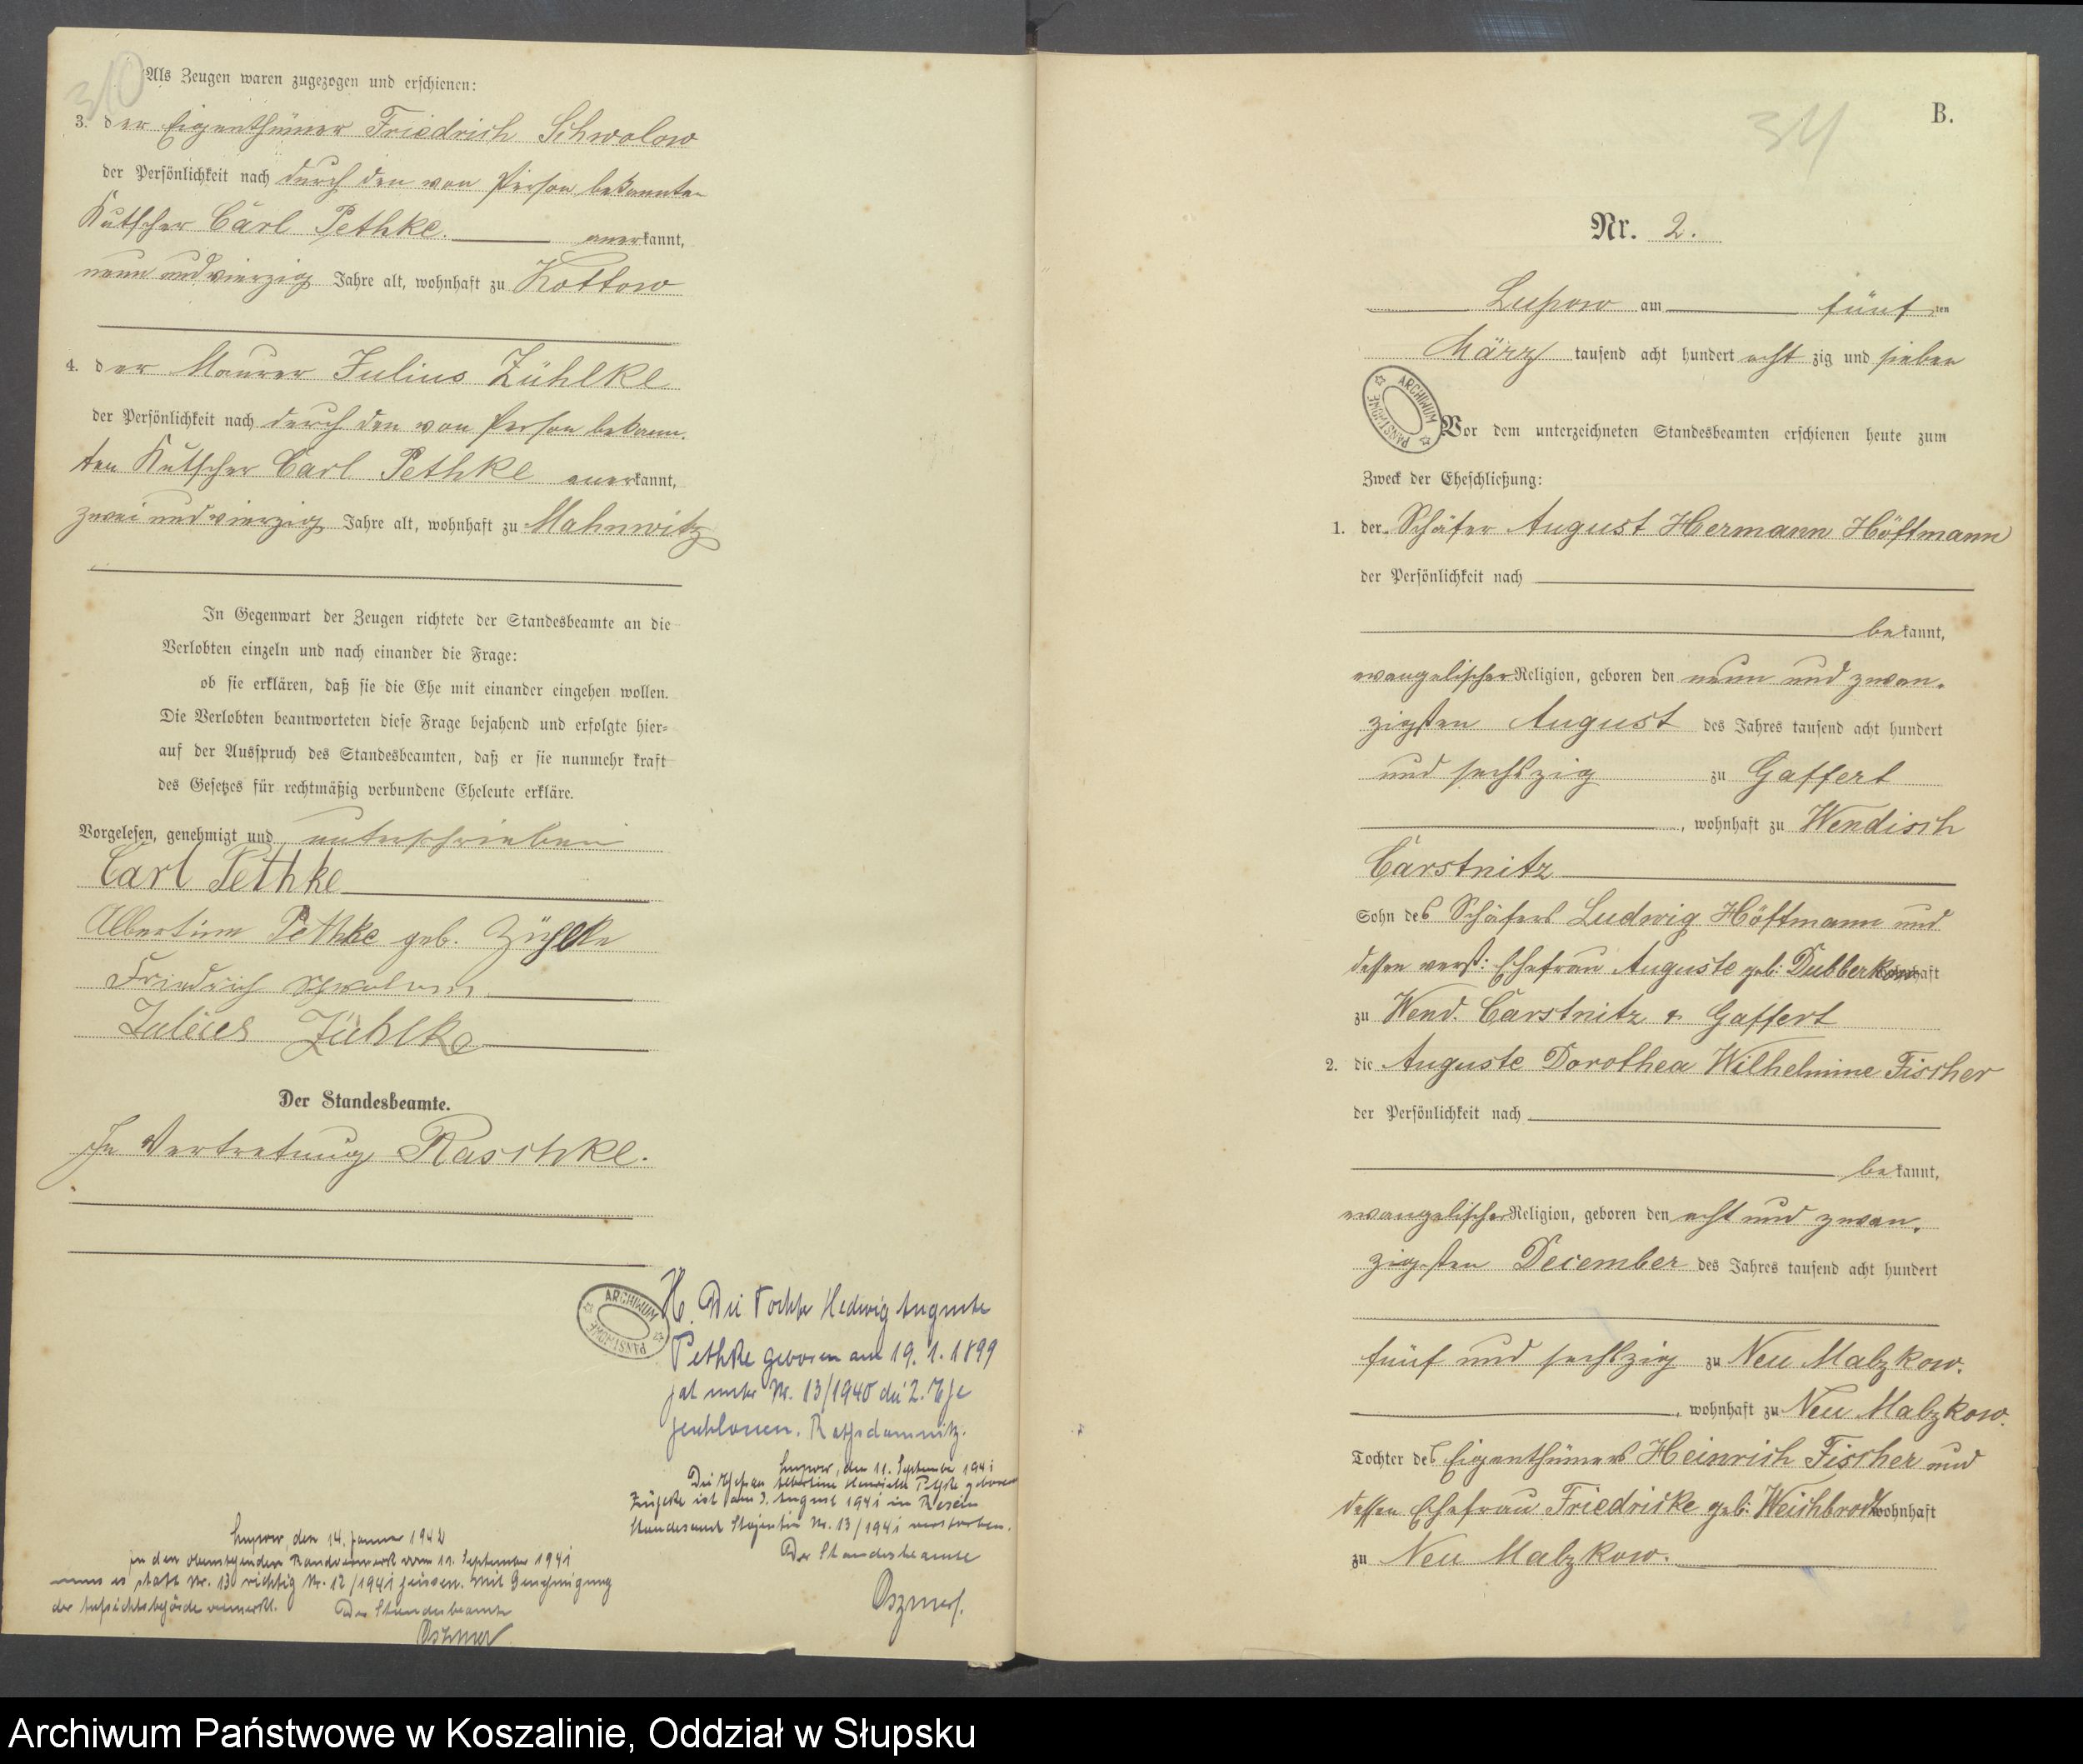 310
Als Zeugen waren zugezogen und erschienen:
3. der Eigenthümer Friedrich Schwolow
der Persönlichkeit nach durch den von Person bekannten
Kutscher Carl Pethke. anerkannt,
neun und vierzig Jahre alt, wohnhaft zu Kottow
4. der Maurer Julius Zühlke
der Persönlichkeit nach durch den von Person bekann-
ten Kutscher Carl Pethke anerkannt,
zwei und vierzig Jahre alt, wohnhaft zu Mahnwitz
In Gegenwart der Zeugen richtete der Standesbeamte an die
Verlobten einzeln und nach einander die Frage:
ob sie erklären, daß sie die Ehe mit einander eingehen wollen.
Die Verlobten beantworteten diese Frage bejahend und erfolgte hier-
auf der Ausspruch des Standesbeamten, daß er sie nunmehr kraft
des Gesetzes für rechtmäßig verbundene Eheleute erkläre.
Vorgelesen, genehmigt und unterschrieben
Carl Pethke
Albertine Pethke geb. Zühlke
Friedrich Schwolow
Julius Zühlke
Der Standesbeamte.
In Vertretung Raschke.
ARCHIWUM PAŃSTWOWE
H. Die Tochter Hedwig Auguste
Pethke geboren am 19.1.1899
hat unter Nr. 13/1940 die 2. Ehe
geschlossen. Rathsdamnitz.
Lupow, den 11. September 1941
Die Ehefrau Albertine Henriette Pethke geborene
Zühlke ist am 3. August 1941 in
Standesamt Stojentin Nr. 13/1941 verstorben.
Der Standesbeamte
Lupow, den 14. Januar 1942
In den obenstehenden Randvermerk vom 11. September 1941
muss es statt Nr. 13 richtig Nr. 12/1941 heissen. Mit Genehmigung
der Aufsichtsbehörde vermerkt. Der Standesbeamte
34
B.
Nr. 2.
Lupow am fünf ten
März tausend acht hundert acht zig und sieben
ARCHIWUM PAŃSTWOWE
Vor dem unterzeichneten Standesbeamten erschienen heute zum
Zweck der Eheschließung:
1. der Schäfer August Hermann Höftmann
der Persönlichkeit nach
bekannt,
evangelischer Religion, geboren den neun und zwan-
zigsten August des Jahres tausend acht hundert
und sechszig zu Gaffert
, wohnhaft zu Wendisch
Carstnitz
Sohn des Schäfers Ludwig Höftmann und
dessen verst: Ehefrau Auguste geb: Dubberkow wohnhaft
zu Wend. Carstnitz & Gaffert
2. die Auguste Dorothea Wilhelmine Fischer
der Persönlichkeit nach
bekannt,
evangelischer Religion, geboren den acht und zwan-
zigsten December des Jahres tausend acht hundert
fünf und sechszig zu Neu Malzkow.
, wohnhaft zu Neu Malzkow.
Tochter des Eigenthümers Heinrich Fischer und
dessen Ehefrau Friedricke geb: Weichbrodt wohnhaft
zu Neu Malzkow.
Archiwum Państwowe w Koszalinie, Oddział w Słupsku